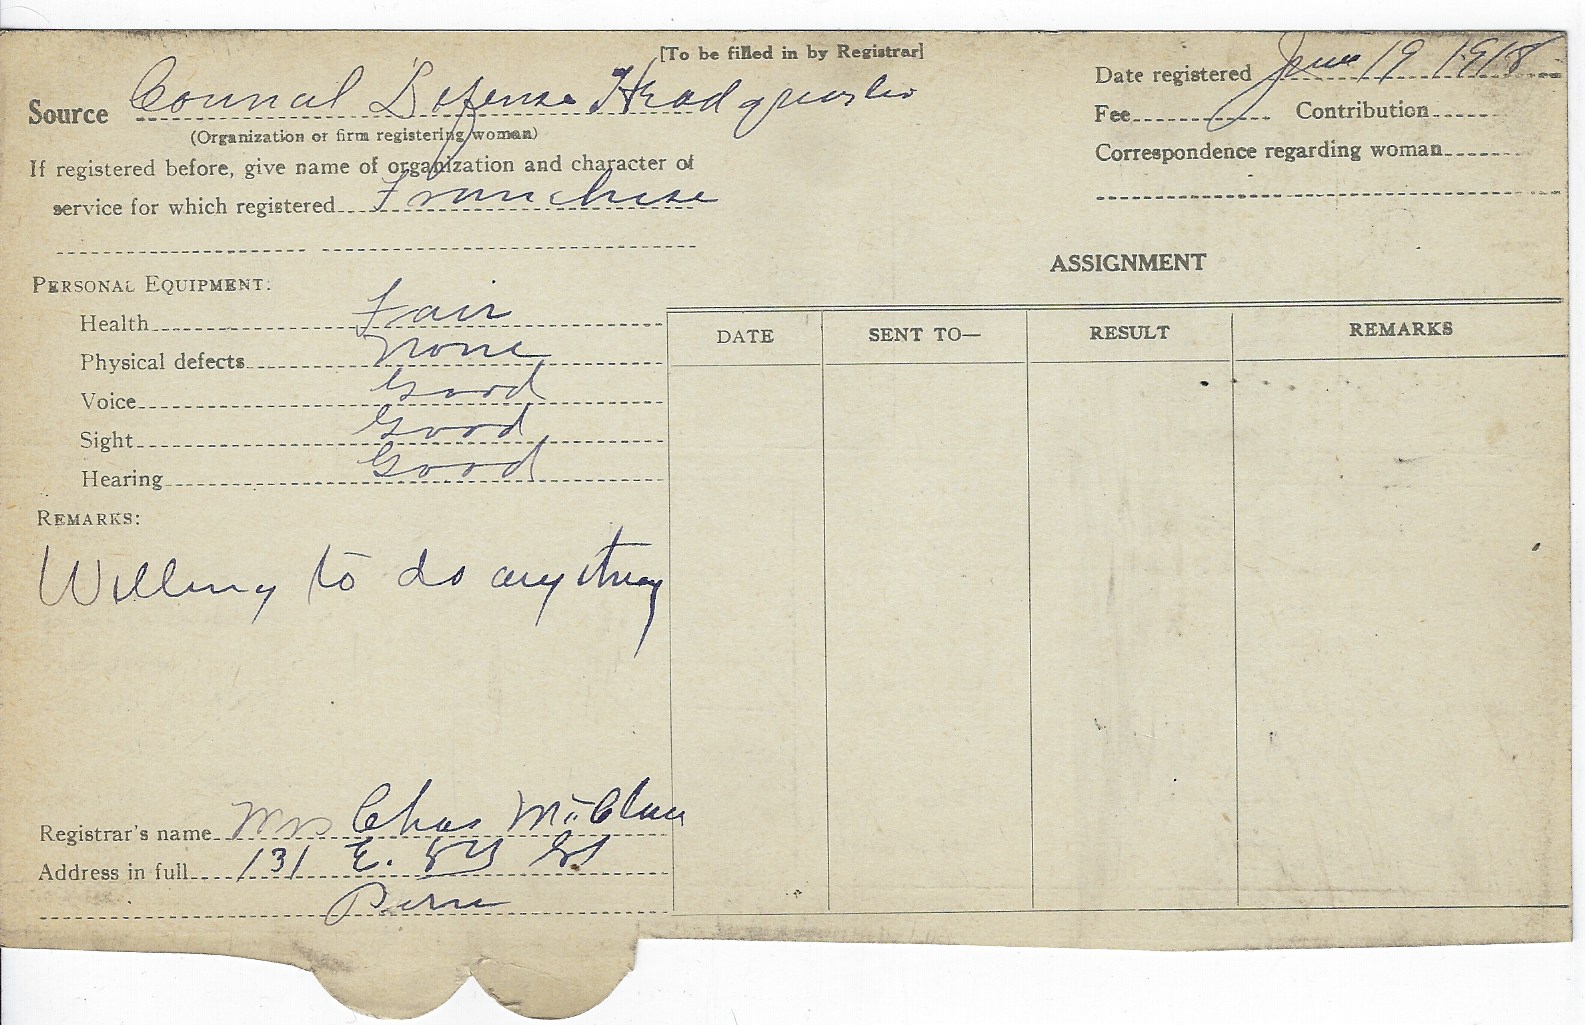 [To be filled in by Registrar]
Source Council Defense Headquarters
(Organization or firm registering woman)
If registered before, give name of organization and character of
service for which registered Franchise
Date registered June 19 1918
Fee Contribution
Correspondence regarding woman
PERSONAL EQUIPMENT:
Health Fair
Physical defects None
Voice Good
Sight Good
Hearing Good
REMARKS:
Willing to do anything
Registrar's name Mrs Chas
Address in full 131 E. St
ASSIGNMENT
DATE SENT TO— RESULT REMARKS